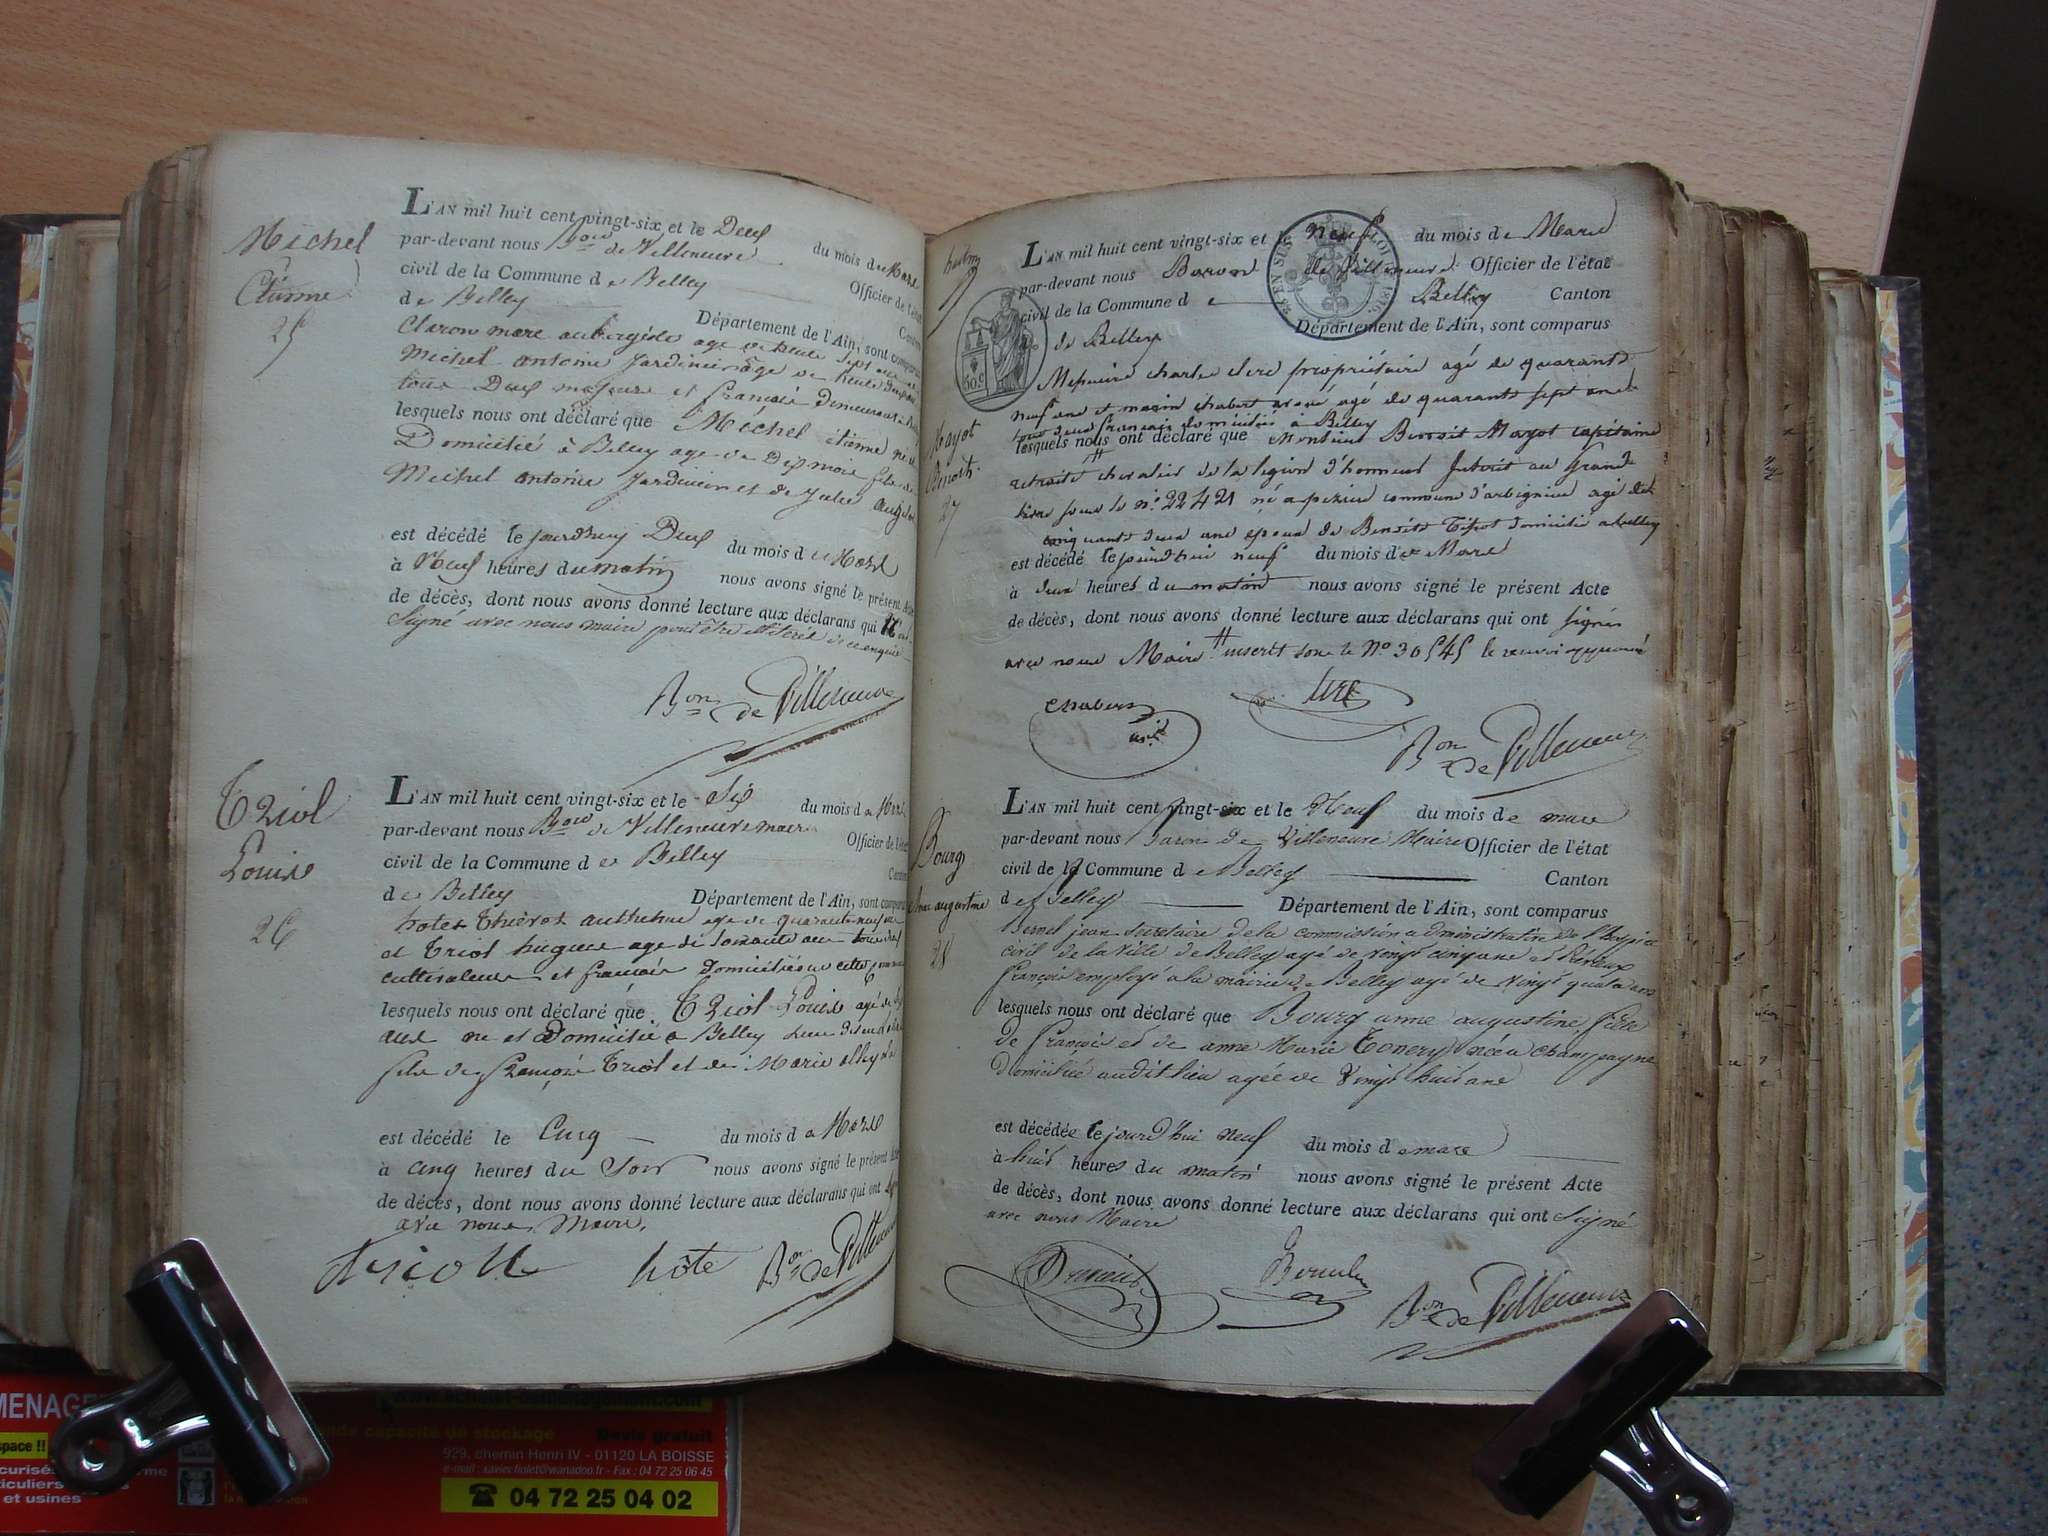 Michel
Etienne
25
L'AN mil huit cent vingt-six et le Deux du mois de Mars
par-devant nous Bon de Villeneuve Officier de l'état
civil de la Commune de Belley Canton
de Belley Département de l'Ain, sont comparus
Claron marc aubergiste age de trente sept ans et
Michel antoine Jardinier age de trente
tous Deux majeurs et français demeurant à
lesquels nous ont déclaré que Michel étienne né et
Domicilié à Belley age de Dix mois fils de
Michel antoine Jardinier et de Julie
est décédé le jourdhuy Deux du mois de Mars
à Neuf heures du matin nous avons signé le présent Acte
de décès, dont nous avons donné lecture aux déclarans qui ont
signé avec nous maire pour être de ce enquis
Bon de Villeneuve
Triol
Louise
26
L'AN mil huit cent vingt-six et le Six du mois de Mars
par-devant nous Bon de Villeneuve maire Officier de l'état
civil de la Commune de Belley Canton
de Belley Département de l'Ain, sont comparus
hote age de quarante neuf ans
et Triol hugues age de soixante ans tous deux
cultivateurs et français Domiciliés en cette commune
lesquels nous ont déclaré que Triol Louise agé de
ans né et Domicilié a Belley
fils de françois Triol et de Marie
est décédé le Cinq du mois de Mars
à cinq heures du Soir nous avons signé le présent Acte
de décès, dont nous avons donné lecture aux déclarans qui ont signé
avec nous Maire,
tricoll hôte Bon de Villeneuve
Mayot
Benoit
27
L'AN mil huit cent vingt-six et le neuf du mois de Mars
par-devant nous Baron de Villeneuve Officier de l'état
civil de la Commune de Belley Canton
de Belley Département de l'Ain, sont comparus
50 c
Messieurs charles sire propriétaire agé de quarante
neuf ans et marin chabert avoué agé de quarante sept ans
tous deux français domiciliés à Belley
lesquels nous ont déclaré que Monsieur Benoit Mayot capitaine
retraité # chevalier de la legion d'honneur Inscrit au Grand
livre sous le no. 22421 né a pezieu commune d'arbignieu agé de
cinquante deux ans époux de Benoite Tissot domicilié a belley
est décédé le jourd'hui neuf du mois de Mars
à deux heures du matin nous avons signé le présent Acte
de décès, dont nous avons donné lecture aux déclarans qui ont signés
avec nous Maire. # inscrit sous le No 30545 le renvoi approuvé
chabert
avoué
sire
Bon de Villeneuve
Bourg
Anne augustine
28
L'AN mil huit cent vingt-six et le Neuf du mois de mars
par-devant nous Baron de Villeneuve Maire Officier de l'état
civil de la Commune de Belley Canton
de Belley Département de l'Ain, sont comparus
jean secretaire de la commission administrative de l'hospice
civil de la Ville de Belley agé de vingt cinq ans et
françois employé a la mairie de Belley agé de vingt quatre ans
lesquels nous ont déclaré que Bourg anne augustine, fille
de François et de anne Marie Tonery née a champagne
Domiciliée audit lieu agée de Vingt huit ans
est décédée le jourd'hui neuf du mois de mars
à huit heures du matin nous avons signé le présent Acte
de décès, dont nous avons donné lecture aux déclarans qui ont signé
avec nous Maire
Bon de Villeneuve
MENAGE
space !!
grande capacité de stockage Devis gratuit
929, chemin Henri IV - 01120 LA BOISSE
e-mail : xavier.fiolet@wanadoo.fr - Fax : 04 72 25 06 45
☎ 04 72 25 04 02
et usines